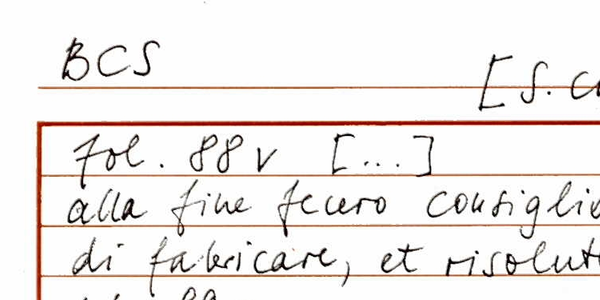 BCS
[S.
fol. 88v [...]
alla fine fecero consiglio
di fabricare, et